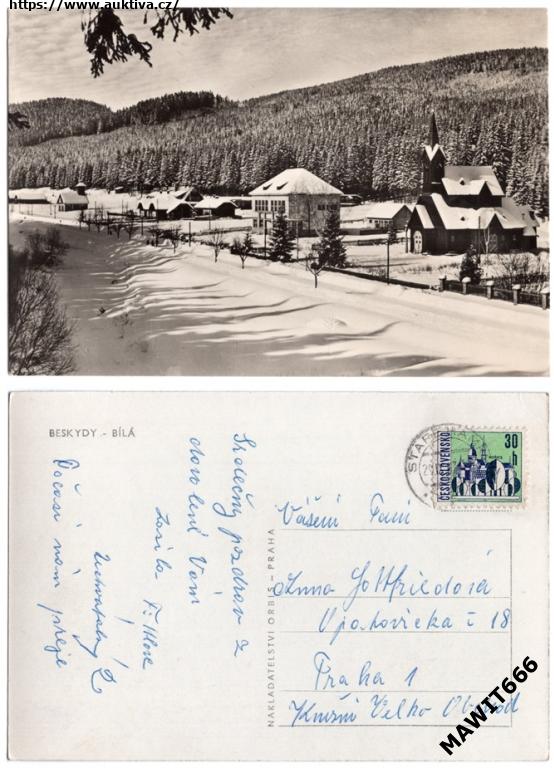 https://www.auktiva.cz/
BESKYDY - BÍLÁ
Srdečný pozdrav z
dovolené Vám
zasílá
Počasí nám přeje
NAKLADATELSTVÍ ORBIS - PRAHA
STARÉ
ČESKOSLOVENSKO
30
h
Vážení Paní
Anna Gottfriedová
Opatovická č 18
Praha 1
Knižní Velko Obchod
MAWIT666